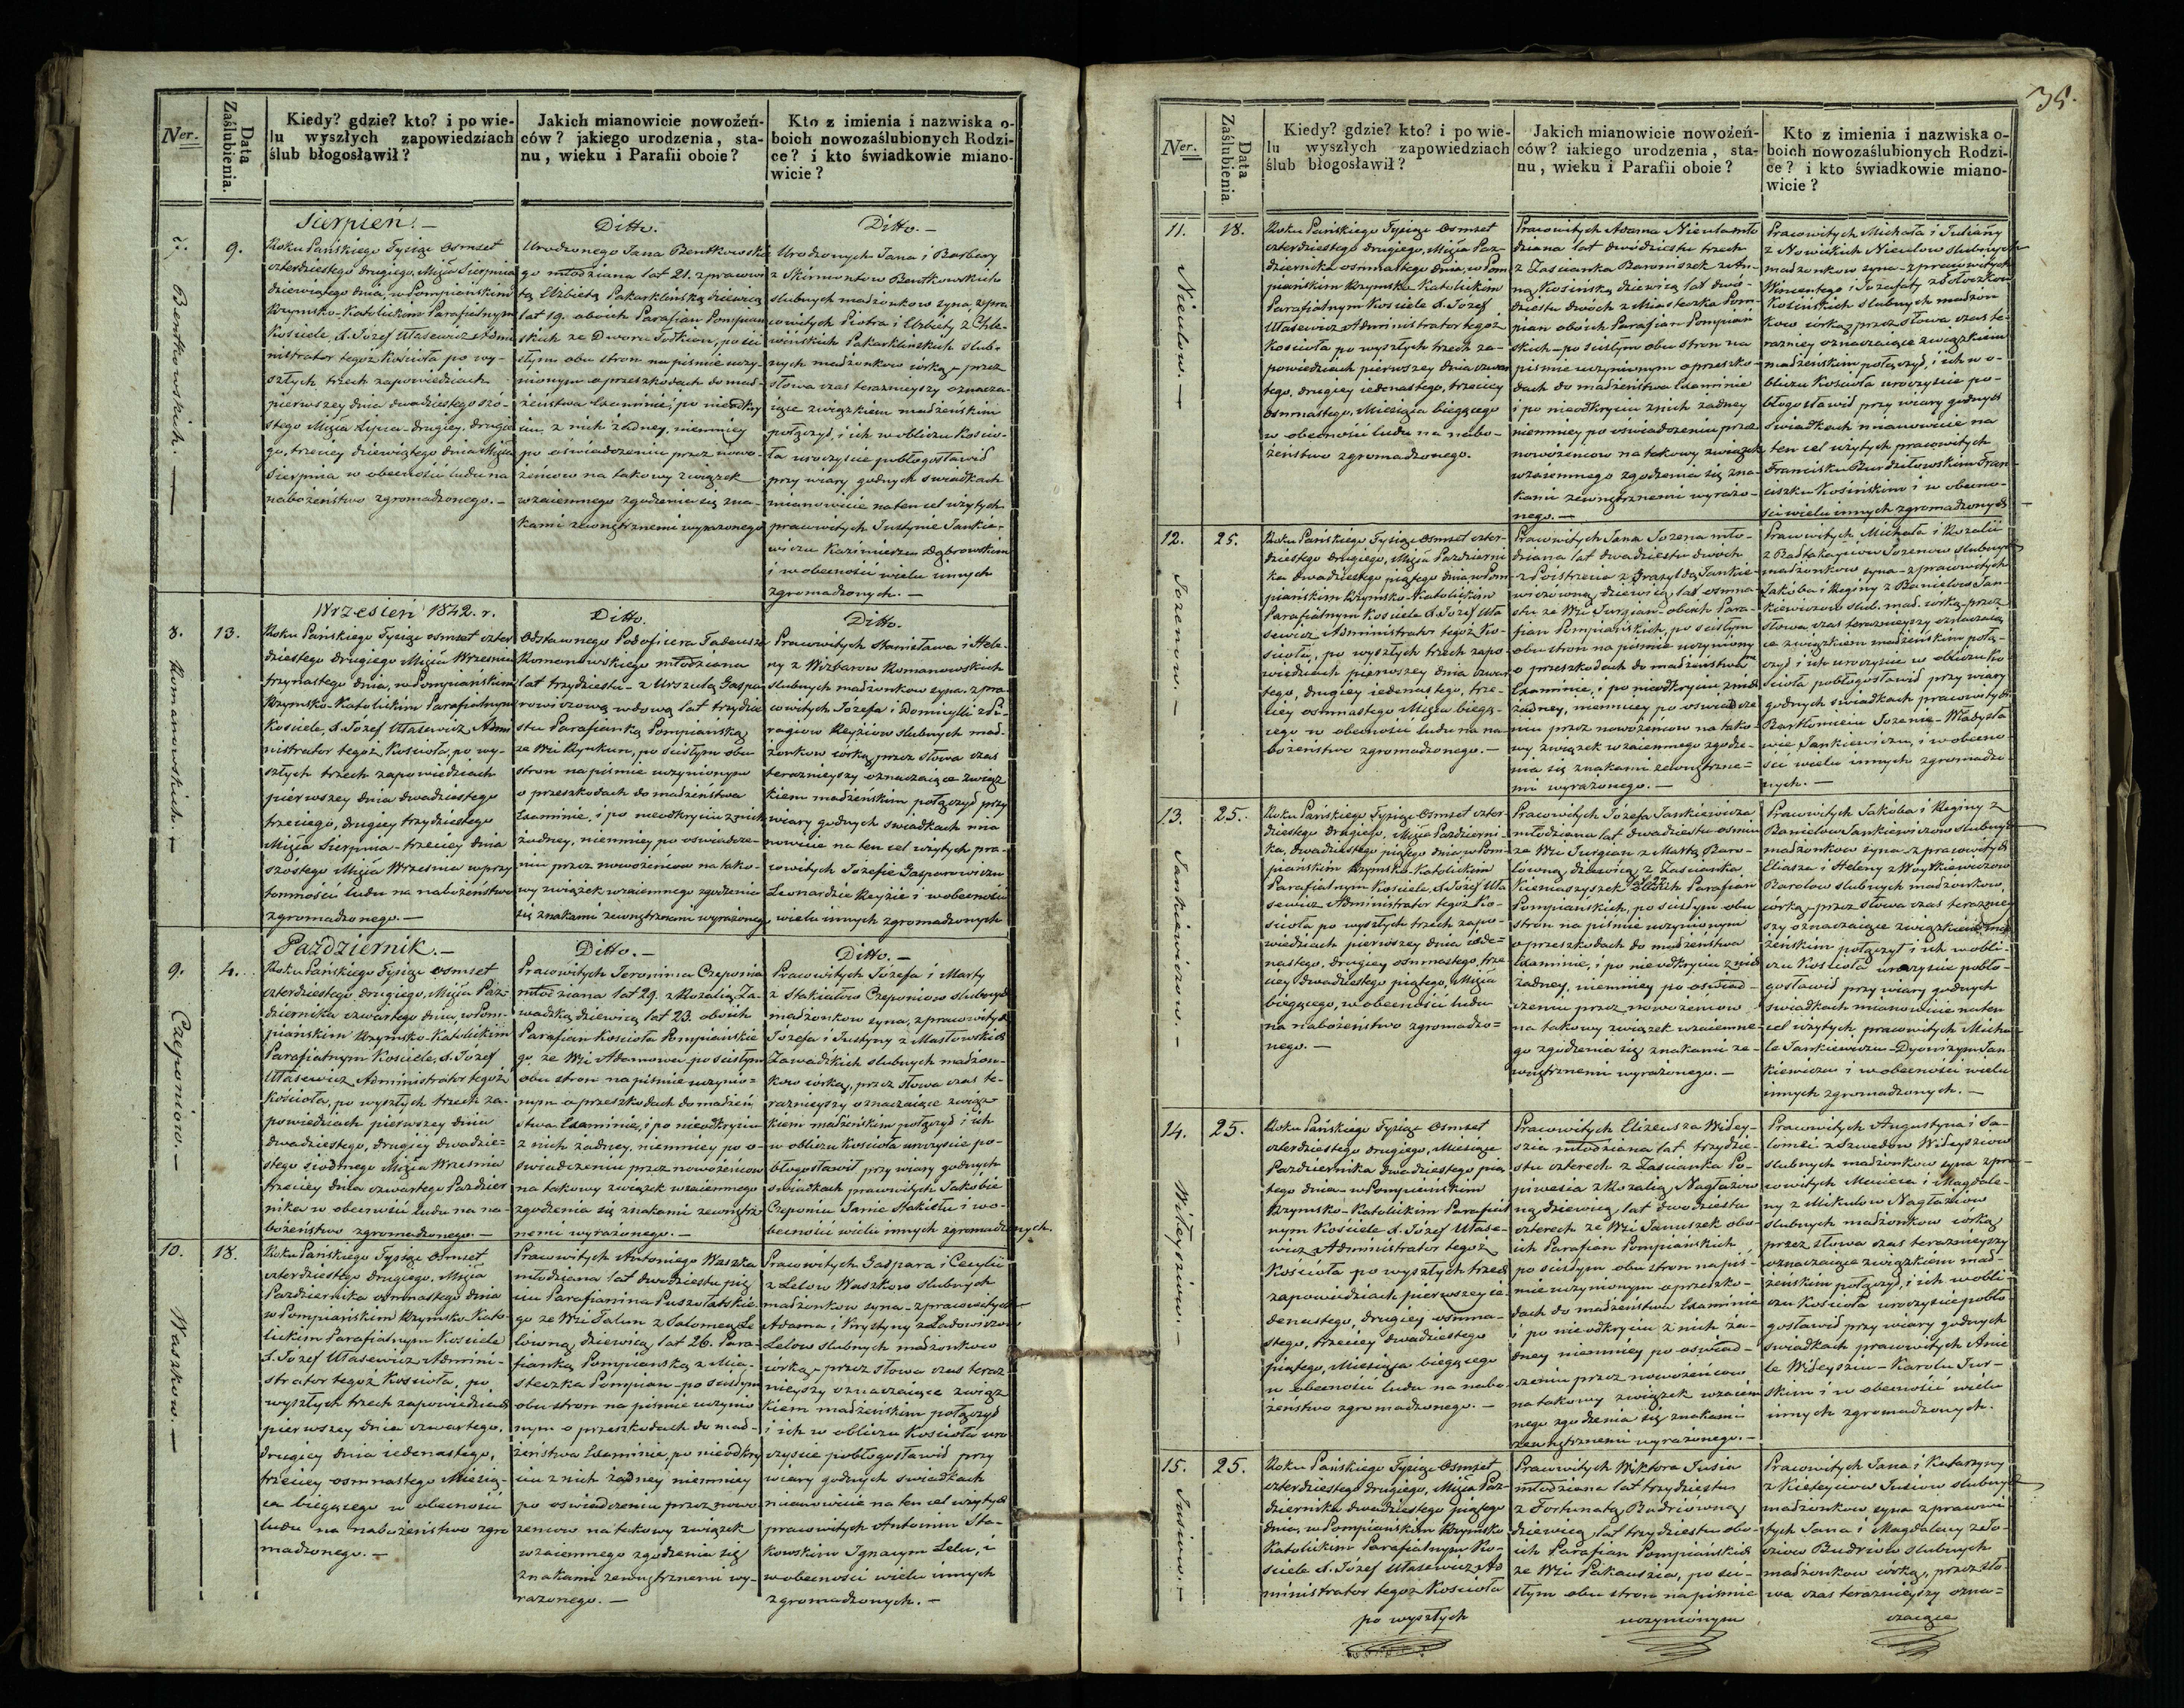 Ner.
Data Zaślubienia.
Kiedy? gdzie? kto? i po wie-
lu wyszłych zapowiedziach
ślub błogosławił?
Jakich mianowicie nowożeń-
ców? jakiego urodzenia, sta-
nu, wieku i Parafii oboie?
Kto z imienia i nazwiska o-
boich nowozaślubionych Rodzi-
ce? i kto świadkowie miano-
wicie?
7.
Bentkowskich. —
9.
Sierpień. —
Roku Pańskiego Tysiąc Osmset
czterdziestego drugiego, Msca Sierpnia
dziewiątego dnia, w Pompiańskim
Rzymsko-Katolickim Parafialnym
Kościele, X. Józef Ułasewicz Admi
nistrator tegoż Kościoła po wy-
szłych trzech zapowiedziach
pierwszey dnia dwadziestego szó-
stego Msca Lipca - drugiey drugie
go, trzeciey dziewiątego dnia Msca
Sierpnia w obecności ludu na
nabożeństwo zgromadzonego. —
Ditto. —
Urodzonego Jana Bentkowskie
go młodziana lat 21. z pracowi
tą Elżbietą Pakarklińską dziewicą
lat 19. oboich Parafian Pompian
skich ze Dworu, po ści
słym obu stron na piśmie uczy-
nionym o przeszkodach do mał-
żeństwa Examinie, po nieodkry
ciu z nich żadney, niemniey
po oświadczeniu przez nowo-
żeńcow na takowy związek
wzaiemnego zgodzenia się zna-
kami zewnętrznemi wyrażonego
Ditto. —
Urodzonych Jana i Barbary
z Skirmontow Bentkowskich
slubnych małżonkow syna, z pra-
cowitych Piotra i Elżbiety z Chle-
wińskich Pakarklinskich slub-
nych małżonkow córką - przez
słowa czas teraznieyszy oznacza-
iące związkiem małżeńskim
połączył, i ich w obliczu Kościo-
ła uroczyście pobłogosławił
przy wiary godnych swiadkach
mianowicie na ten cel użytych
pracowitych Justynie Jankie-
wiczu Kazimierzu Dąbrowskim
i w obecności wielu innych
zgromadzonych. —
8.
Romanowskich. —
13.
Wrzesień 1842. r.
Roku Pańskiego Tysiąc osmset czter
dziestego drugiego Msca Wrzesnia
trzynastego dnia, w Pompianskim
Rzymsko-Katolickim Parafialnym
Kościele, X. Józef Ułasewicz Admi
nistrator tegoż Kościoła, po wy-
szłych trzech zapowiedziach
pierwszey dnia dwadziestego
trzeciego, drugiey trzydziestego
Msca Sierpnia - trzeciey dnia
szóstego Msca Wrzesnia w przy
tomności ludu na nabożeństwo
zgromadzonego. —
Ditto.
Odstawnego Podoficera Tadeusza
Romanowskiego młodziana
lat trzydziestu - z Urszulą Gaspa
rowiczową wdową lat trzydzie
stu Parafianką Pompiańską
ze Wsi Rynkun, po ścisłym obu
stron na piśmie uczynionym
o przeszkodach do małżeństwa
Examinie, i po nieodkryciu z nich
żadney, niemniey po oświadcze-
niu przez nowożeńcow na tako-
wy związek wzaiemnego zgodzenia
się znakami zewnętrznemi wyrażonego
Ditto.
Pracowitych Stanisława i Hele-
ny z Wizbarow Romanowskich
slubnych małżonkow syna, z pra-
cowitych Jozefa i Domicylli z Pi-
ragiow Reyżiow slubnych mał-
żonkow córką, przez słowa czas
teraznieyszy oznaczaiące związ
kiem małżeńskim połączył przy
wiary godnych swiadkach mia
nowicie na ten cel użytych pra-
cowitych Jozefie Gasparowiczu
Leonardzie Reyżie i w obecności
wielu innych zgromadzonych
9.
Czeponiow. —
4.
Październik. —
Roku Pańskiego Tysiąc osmset
czterdziestego drugiego, Msca Paź-
dziernika czwartego dnia, w Pom-
piańskim Rzymsko-Katolickim
Parafialnym Kościele, X. Józef
Ułasewicz Administrator tegoż
Kościoła, po wyszłych trzech za-
powiedziach pierwszey dnia
dwadziestego, drugiey dwadzie-
stego siodmego Msca Wrzesnia
trzeciey dnia czwartego Paździer
nika w obecności ludu na na-
bożeństwo zgromadzonego. —
Ditto. —
Pracowitych Jeronima Czeponia
młodziana lat 29. z Rozalią Za-
wadzką dziewicą lat 23. oboich
Parafian Kościoła Pompiańskie
go ze Wsi Adamowa po ścisłym
obu stron na piśmie uczynio=
nym o przeszkodach do małżeń
stwa Examinie, i po nieodkryciu
z nich żadney, niemniey po o-
świadczeniu przez nowożeńcow
na takowy związek wzaiemnego
zgodzenia się znakami zewnętrz
nemi wyrażonego. —
Ditto. —
Pracowitych Jozefa i Marty
z Stakiełow Czeponiow slubnych
małżonkow syna, z pracowitych
Józefa i Justyny z Masłowskich
Zawadzkich slubnych małżon-
kow córką, przez słowa czas te-
raznieyszy oznaczaiące związ
kiem małżeńskim połączył i ich
w obliczu Kościoła uroczyście po-
błogosławił przy wiary godnych
świadkach pracowitych Jakobie
Czeponiu Janie Stakiełu i w o-
becności wielu innych zgromadzonych
10.
Waszkow. —
18.
Roku Pańskiego Tysiąc Osmset
czterdziestego drugiego, Msca
Października osmnastego dnia
w Pompiańskim Rzymsko Kato-
lickim Parafialnym Kościele
X. Józef Ułasewicz Admini-
strator tegoż Kościoła, po
wyszłych trzech zapowiedziach
pierwszey dnia czwartego,
drugiey dnia iedenastego,
trzeciey osmnastego Miesią-
ca biegącego w obecności
ludu na nabożeństwo zgro
madzonego. —
Pracowitych Antoniego Waszka
młodziana lat dwudziestu pię
ciu Parafianina Puszołatskie
go ze Wsi Talun z Salomeą Le
lówną dziewicą lat 26. Para-
fianką Pompianską z Mia-
steczka Pompian - po ścisłym
obu stron na piśmie uczynio
nym o przeszkodach do mał-
żeństwa Examinie, po nieodkry
ciu z nich żadney niemniey
po oświadczeniu przez nowo
żeńcow na takowy związek
wzaiemnego zgodzenia się
znakami zewnętrznemi wy-
rażonego. —
Pracowitych Gaspara i Cecylii
z Lelow Waszkow slubnych
małżonkow syna - z pracowitych
Adama i Krystyny z
Lelow slubnych małżonkow
córką - przez słowa czas teraz
nieyszy oznaczaiące związ
kiem małżeńskim połączył
i ich w obliczu Kościoła uro
czyście pobłogosławił przy
wiary godnych swiadkach
mianowicie na ten cel użytych
pracowitych Antonim Sta-
kowskim Ignacym Lelu, i
w obecności wielu innych
zgromadzonych. —
35.
Ner.
Data Zaślubienia.
Kiedy? gdzie? kto? i po wie-
lu wyszłych zapowiedziach
ślub błogosławił?
Jakich mianowicie nowożeń-
ców? iakiego urodzenia, sta-
nu, wieku i Parafii oboie?
Kto z imienia i nazwiska o-
boich nowozaślubionych Rodzi-
ce? i kto świadkowie miano-
wicie?
11.
Nieulow. —
18.
Roku Pańskiego Tysiąc Osmset
czterdziestego drugiego, Msca Paź-
dziernika osmnastego dnia, w Pom
piańskim Rzymsko Katolickim
Parafialnym Kościele X. Józef
Ułasewicz Administrator tegoż
Kościoła po wyszłych trzech za-
powiedziach pierwszey dnia czwar
tego, drugiey iedenastego, trzeciey
osmnastego, Miesiąca biegącego
w obecności ludu na nabo-
żeństwo zgromadzonego.
Pracowitych Adama Nieula mło
dziana lat dwódziestu trzech
z Zascianka Barwniszek z An-
ną Kosińską dziewicą lat dwó-
dziestu dwóch z Miasteczka Pom-
pian oboich Parafian Pompiań
skich - po ścisłym obu stron na
piśmie uczynionym o przeszko-
dach do małżeństwa Examinie
i po nieodkryciu z nich żadney
niemniey po oswiadczeniu przez
nowożeńcow na takowy związek
wzaiemnego zgodzenia się zna-
kami zewnętrznemi wyrażo-
nego. —
Pracowitych Michała i Juliany
z Nowickich Nieulow slubnych
małżonkow syna - z pracowitych
Wincentego i Jozefaty z
Kosińskich slubnych małżon
kow córką, przez słowa czas te-
razniey oznaczaiące związkiem
małżeńskim połączył, i ich w o-
bliczu Kościoła uroczyście po-
błogosławił przy wiary godnych
świadkach mianowicie na
ten cel użytych pracowitych
Francisku Burdziłowskim Fran
ciszku Kosińskim i w obecno-
sci wielu innych zgromadzonych
12.
Jozenow. —
25.
Roku Pańskiego Tysiąc Osmset czter-
dziestego drugiego, Msca Październi
ka dwadziestego piątego dnia, w Pom
piańskim Rzymsko-Katolickim
Parafialnym Kościele X. Józef Uła
sewicz Administrator tegoż Ko-
ścioła, po wyszłych trzech zapo-
wiedziach pierwszey dnia czwar
tego, drugiey iedenastego, trze-
ciey osmnastego Msca biegą-
cego w obecności ludu na na-
bożeństwo zgromadzonego. —
Pracowitych Jana Jozena mło-
dziana lat dwadziestu dwoch
z Poistrzenia z Grazyldą Jankie-
wiczówną dziewicą lat osmna-
stu ze Wsi Jurgian - oboich Para-
fian Pompiańskich, po ścisłym
obu stron na piśmie uczyniony
o przeszkodach do małżeństwa
Examinie, i po nieodkryciu z nich
żadney, niemniey po oswiadcze
niu przez nowożeńcow na tako-
wy związek wzaiemnego zgodze-
nia się znakami zewnętrzne=
mi wyrażonego. —
Pracowitych Michała i Rozalii
z Jozenow slubnych
małżonkow syna - z pracowitych
Jakóba i Reginy z Banielow Jan-
kiewiczow slub. mał. córką - przez
słowa czas teraznieyszy oznaczaią
ce związkiem małżeńskim połą-
czył i ich uroczyście w obliczu Ko
ścioła pobłogosławił przy wiary
godnych świadkach pracowitych
Bartłomieiu Jozenie - Władysła
wie Jankiewiczu, i w obecno-
ści wielu innych zgromadzo
nych. —
13.
Jankiewiczow. —
25.
Roku Pańskiego Tysiąc Osmset czter-
dziestego drugiego, Msca Październi-
ka, dwadziestego piątego dnia w Pom-
piańskim Rzymsko-Katolickim
Parafialnym Kościele, X. Józef Uła
sewicz Administrator tegoż Ko-
ścioła po wyszłych trzech zapo-
wiedziach pierwszey dnia iede=
nastego, drugiey osmnastego, trze
ciey dwadziestego piątego, Msca
biegącego, w obecności ludu
na nabożeństwo zgromadzo=
nego. —
Pracowitych Józefa Jankiewicza
młodziana lat dwadziestu osmiu
ze Wsi Jurgian z Martą Baro-
lówną dziewicą z Zascianka
Kieniaszyszek lat 22 oboich Parafian
Pompiańskich, po scisłym obu
stron na piśmie uczynionym
o przeszkodach do małżeństwa
Examinie, i po nieodkryciu z nich
żadney, niemniey po oswiad-
czeniu przez nowożeńcow
na takowy związek wzaiemne-
go zgodzenia się znakami ze-
wnętrznemi wyrażonego. —
Pracowitych Jakóba i Reginy z
Banielow Jankiewiczow slubnych
małżonkow syna - z pracowitych
Eliasza i Heleny z Woytkiewiczow
Barolow slubnych małżonkow,
córką, - przez słowa czas teraznie
szy oznaczaiące związkiem mał
żeńskim połączył i ich w obli-
czu Kościoła uroczyście pobło-
gosławił przy wiary godnych
swiadkach mianowicie na ten
cel użytych pracowitych Micha-
le Jankiewiczu - Dyonizym Jan-
kiewiczu i w obecności wielu
innych zgromadzonych. —
14.
Witeysziow. —
25.
Roku Pańskiego Tysiąc Osmset
czterdziestego drugiego, Miesiąca
Października dwadziestego pią
tego dnia - w Pompiańskim
Rzymsko-Katolickim Parafial
nym Kościele X. Józef Ułase-
wicz Administrator tegoż
Kościoła po wyszłych trzech
zapowiedziach pierwszey ie-
denastego, drugiey osmna-
stego, trzeciey dwadziestego
piątego, Miesiąca biegącego
w obecności ludu na nabo-
żeństwo zgromadzonego. —
Pracowitych Elizeusza Witey-
szia młodziana lat trzydzie-
stu czterech z Zascianka Po-
piwesia z Rozalią Nagłazów
ną dziewicą lat dwódziestu
czterech ze Wsi Januszek obo-
ich Parafian Pompiańskich
po scisłym obu stron na piś-
mie uczynionym o przeszko-
dach do małżeństwa Examinie
i po nieodkryciu z nich ża-
dney niemniey po oświad-
czeniu przez nowożeńcow
na takowy związek wzaiem
nego zgodzenia się znakami
zewnętrznemi wyrażonego. —
Pracowitych Augustyna i Sa-
lomei z Szwedow Witeysziow
slubnych małżonkow syna z pra-
cowitych Macieia i Magdale-
ny z Mikulow Nagłaziow
slubnych małżonkow córką
przez słowa czas teraznieyszy
oznaczaiące związkiem mał-
żeńskim połączył, i ich w obli-
czu Kościoła uroczyście pobło
gosławił przy wiary godnych
swiadkach pracowitych Anie
le Witeysziu - Karolu Jur-
skim i w obecności wielu
innych zgromadzonych.
15.
Jusiow. —
25.
Roku Pańskiego Tysiąc Osmset
czterdziestego drugiego, Msca Paź-
dziernika dwadziestego piątego
dnia, w Pompiańskim Rzymsko
Katolickim Parafialnym Ko-
ściele X. Józef Ułasewicz Ad
ministrator tegoż Kościoła
po wyszłych
Pracowitych Wiktora Jusia
młodziana lat trzydziestu
z Fortunatą Budriówną
dziewicą lat trzydziestu obo-
ich Parafian Pompiańskich
ze Wsi Pakauszia, po ści-
słym obu stron na piśmie
uczynionym
Pracowitych Jana i Katarzyny
z Kieteyciow Jusiow slubnych
małżonkow syna z pracowi-
tych Jana i Magdaleny z
Budriow slubnych
małżonkow córką, przez sło-
wa czas teraznieyszy ozna=
czaiące